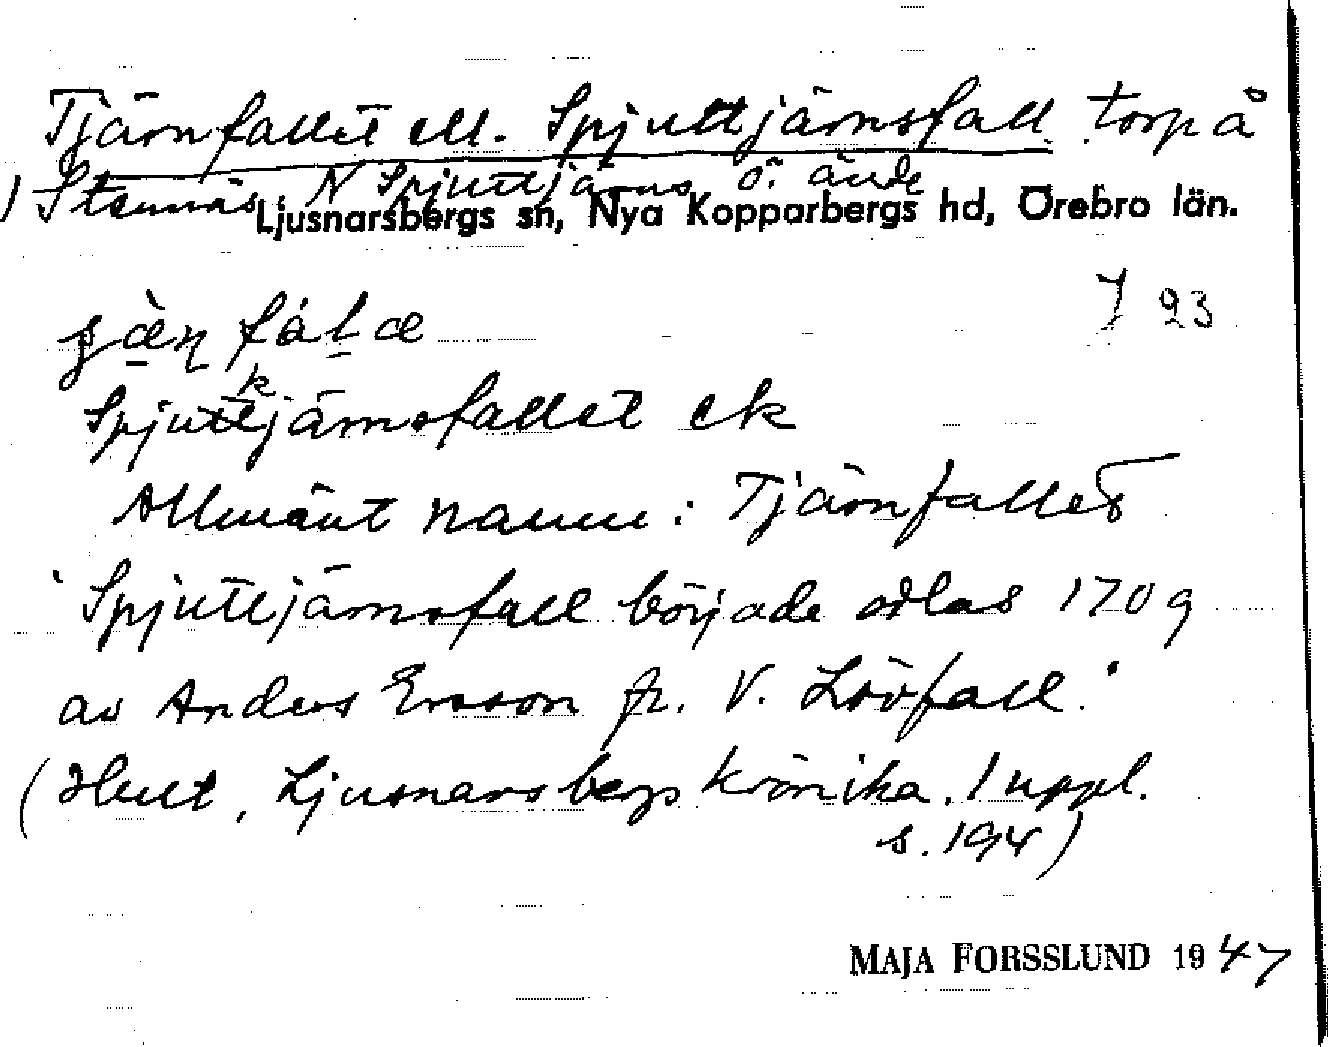 Tjärnfallet ell. Spjuttjärnsfall torp å
) Stennäs. N Spjuttjärns ö. ände
Ljusnarsbergs sn, Nya Kopparbergs hd, Örebro län.
J 23
k
Spjuttjärnsfallet ek
Allmänt namn: Tjärnfallet
"Spjuttjärnsfall började odlas 1709
av Anders Ersson fr. V. Lövfall."
(Hult, Ljusnarsbergs krönika. 1 uppl.
s. 194)
MAJA FORSSLUND 1947